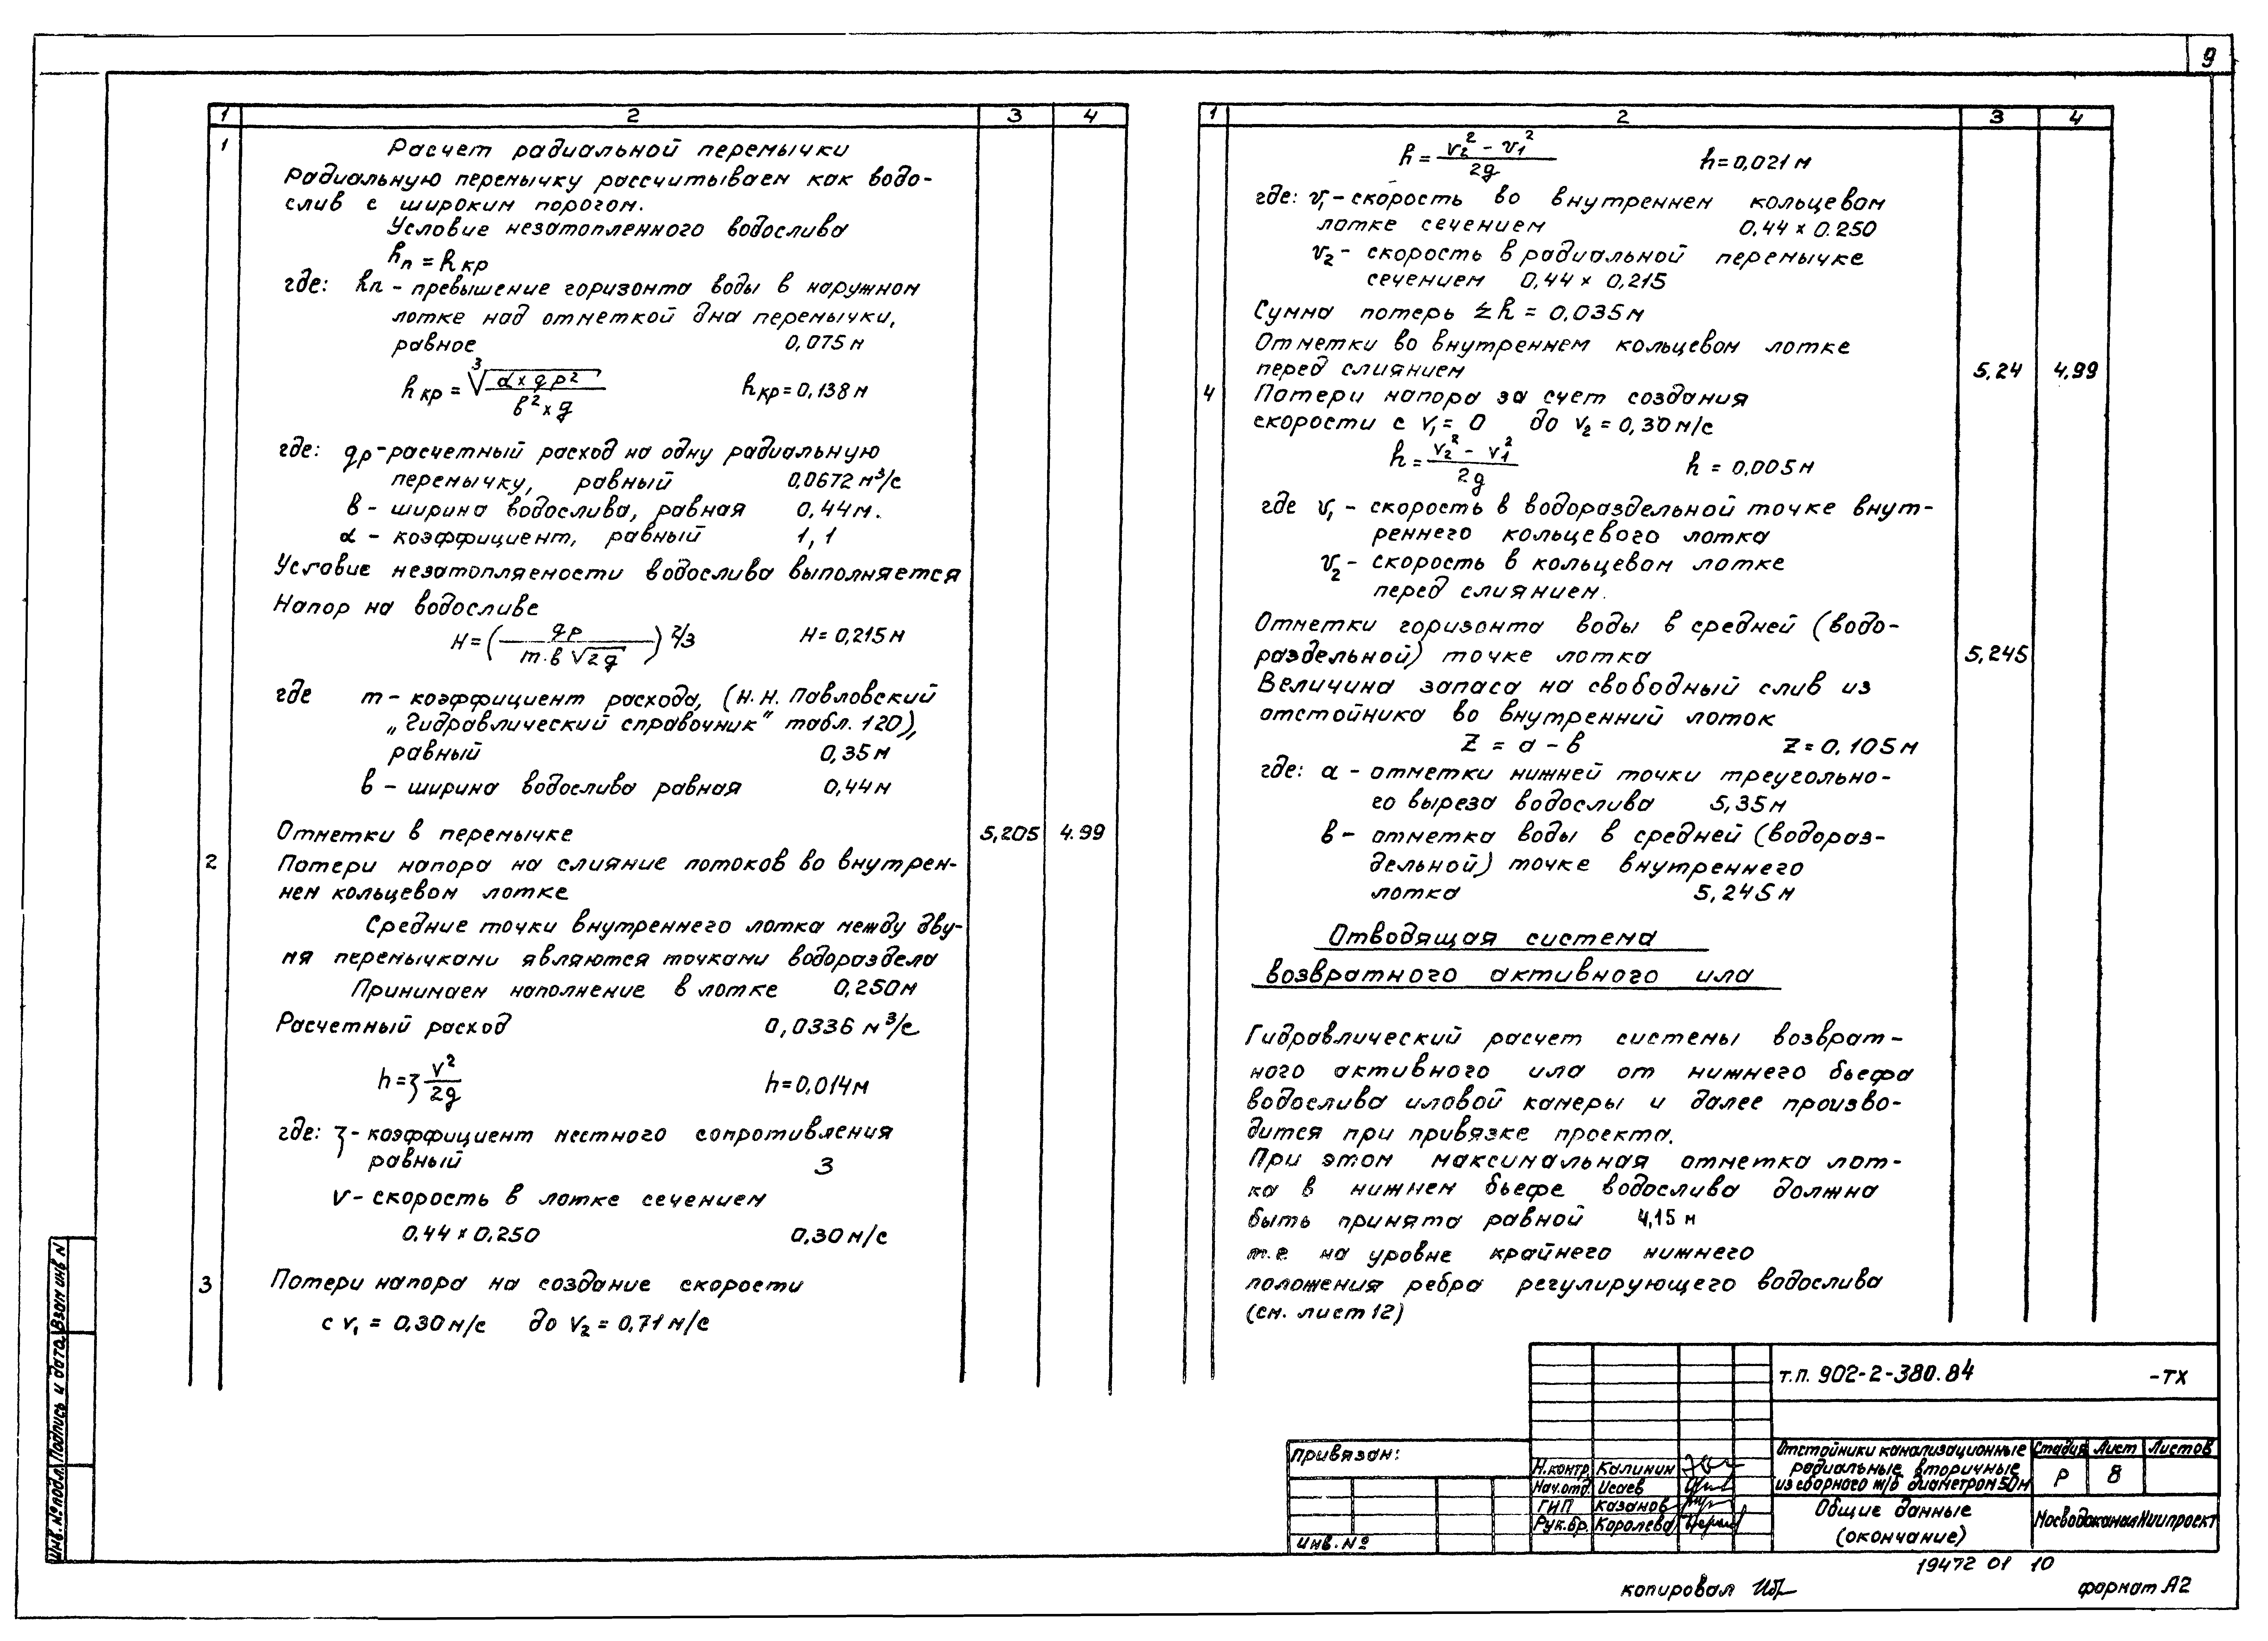 9
1 2 3 4
1 Расчет радиальной перемычки
Радиальную перемычку рассчитываем как водо-
слив с широким порогом.
Условие незатопленного водослива
hп = hкр
где: hп - превышение горизонта воды в наружном
лотке над отметкой дна перемычки,
равное 0,075 м
hкр = ∛(α × qр² / в² × g) hкр = 0,138 м
где: qр - расчетный расход на одну радиальную
перемычку, равный 0,0672 м³/с
в - ширина водослива, равная 0,44 м.
α - коэффициент, равный 1,1
Условие незатопляемости водослива выполняется
Напор на водосливе
H = (qр / m·в √2g)^2/3 H = 0,215 м
где m - коэффициент расхода, (Н.Н. Павловский
„Гидравлический справочник" табл. 120),
равный 0,35 м
в - ширина водослива равная 0,44 м
Отметки в перемычке 5,205 4.99
2 Потери напора на слияние потоков во внутрен-
нем кольцевом лотке
Средние точки внутреннего лотка между дву-
мя перемычками являются точками водораздела
Принимаем наполнение в лотке 0,250 м
Расчетный расход 0,0336 м³/с
h = ξ v²/2g h = 0,014 м
где: ξ - коэффициент местного сопротивления
равный 3
v - скорость в лотке сечением
0.44 × 0.250 0,30 м/с
3 Потери напора на создание скорости
с v₁ = 0,30 м/с до v₂ = 0,71 м/с
1 2 3 4
h = (v₂² - v₁²)/2g h = 0,021 м
где: v₁ - скорость во внутреннем кольцевом
лотке сечением 0,44 × 0.250
v₂ - скорость в радиальной перемычке
сечением 0,44 × 0,215
Сумма потерь Σh = 0,035 м
Отметки во внутреннем кольцевом лотке
перед слиянием 5,24 4,99
4 Потери напора за счет создания
скорости с v₁ = 0 до v₂ = 0,30 м/с
h = (v₂² - v₁²)/2g h = 0,005 м
где v₁ - скорость в водораздельной точке внут-
реннего кольцевого лотка
v₂ - скорость в кольцевом лотке
перед слиянием.
Отметки горизонта воды в средней (водо-
раздельной) точке лотка 5,245
Величина запаса на свободный слив из
отстойника во внутренний лоток
Z = а - в Z = 0,105 м
где: а - отметки нижней точки треугольно-
го выреза водослива 5,35 м
в - отметка воды в средней (водораз-
дельной) точке внутреннего
лотка 5,245 м
Отводящая система
возвратного активного ила
Гидравлический расчет системы возврат-
ного активного ила от нижнего бьефа
водослива иловой камеры и далее произво-
дится при привязке проекта.
При этом максимальная отметка лот-
ка в нижнем бьефе водослива должна
быть принята равной 4,15 м
т.е на уровне крайнего нижнего
положения ребра регулирующего водослива
(см. лист 12)
Инв. № подл. Подпись и дата Взам инв N
Привязан:
Инв. №
Н.контр. Калинин
Нач.отд. Исаев
ГИП Казанов
Рук.бр. Королева
т.п. 902-2-380.84 -ТХ
Отстойники канализационные
радиальные вторичные
из сборного ж/б диаметром 50м
Стадия Лист Листов
Р 8
Общие данные
(окончание)
МосводоканалНИИпроект
19472 01 10
копировал
формат А2